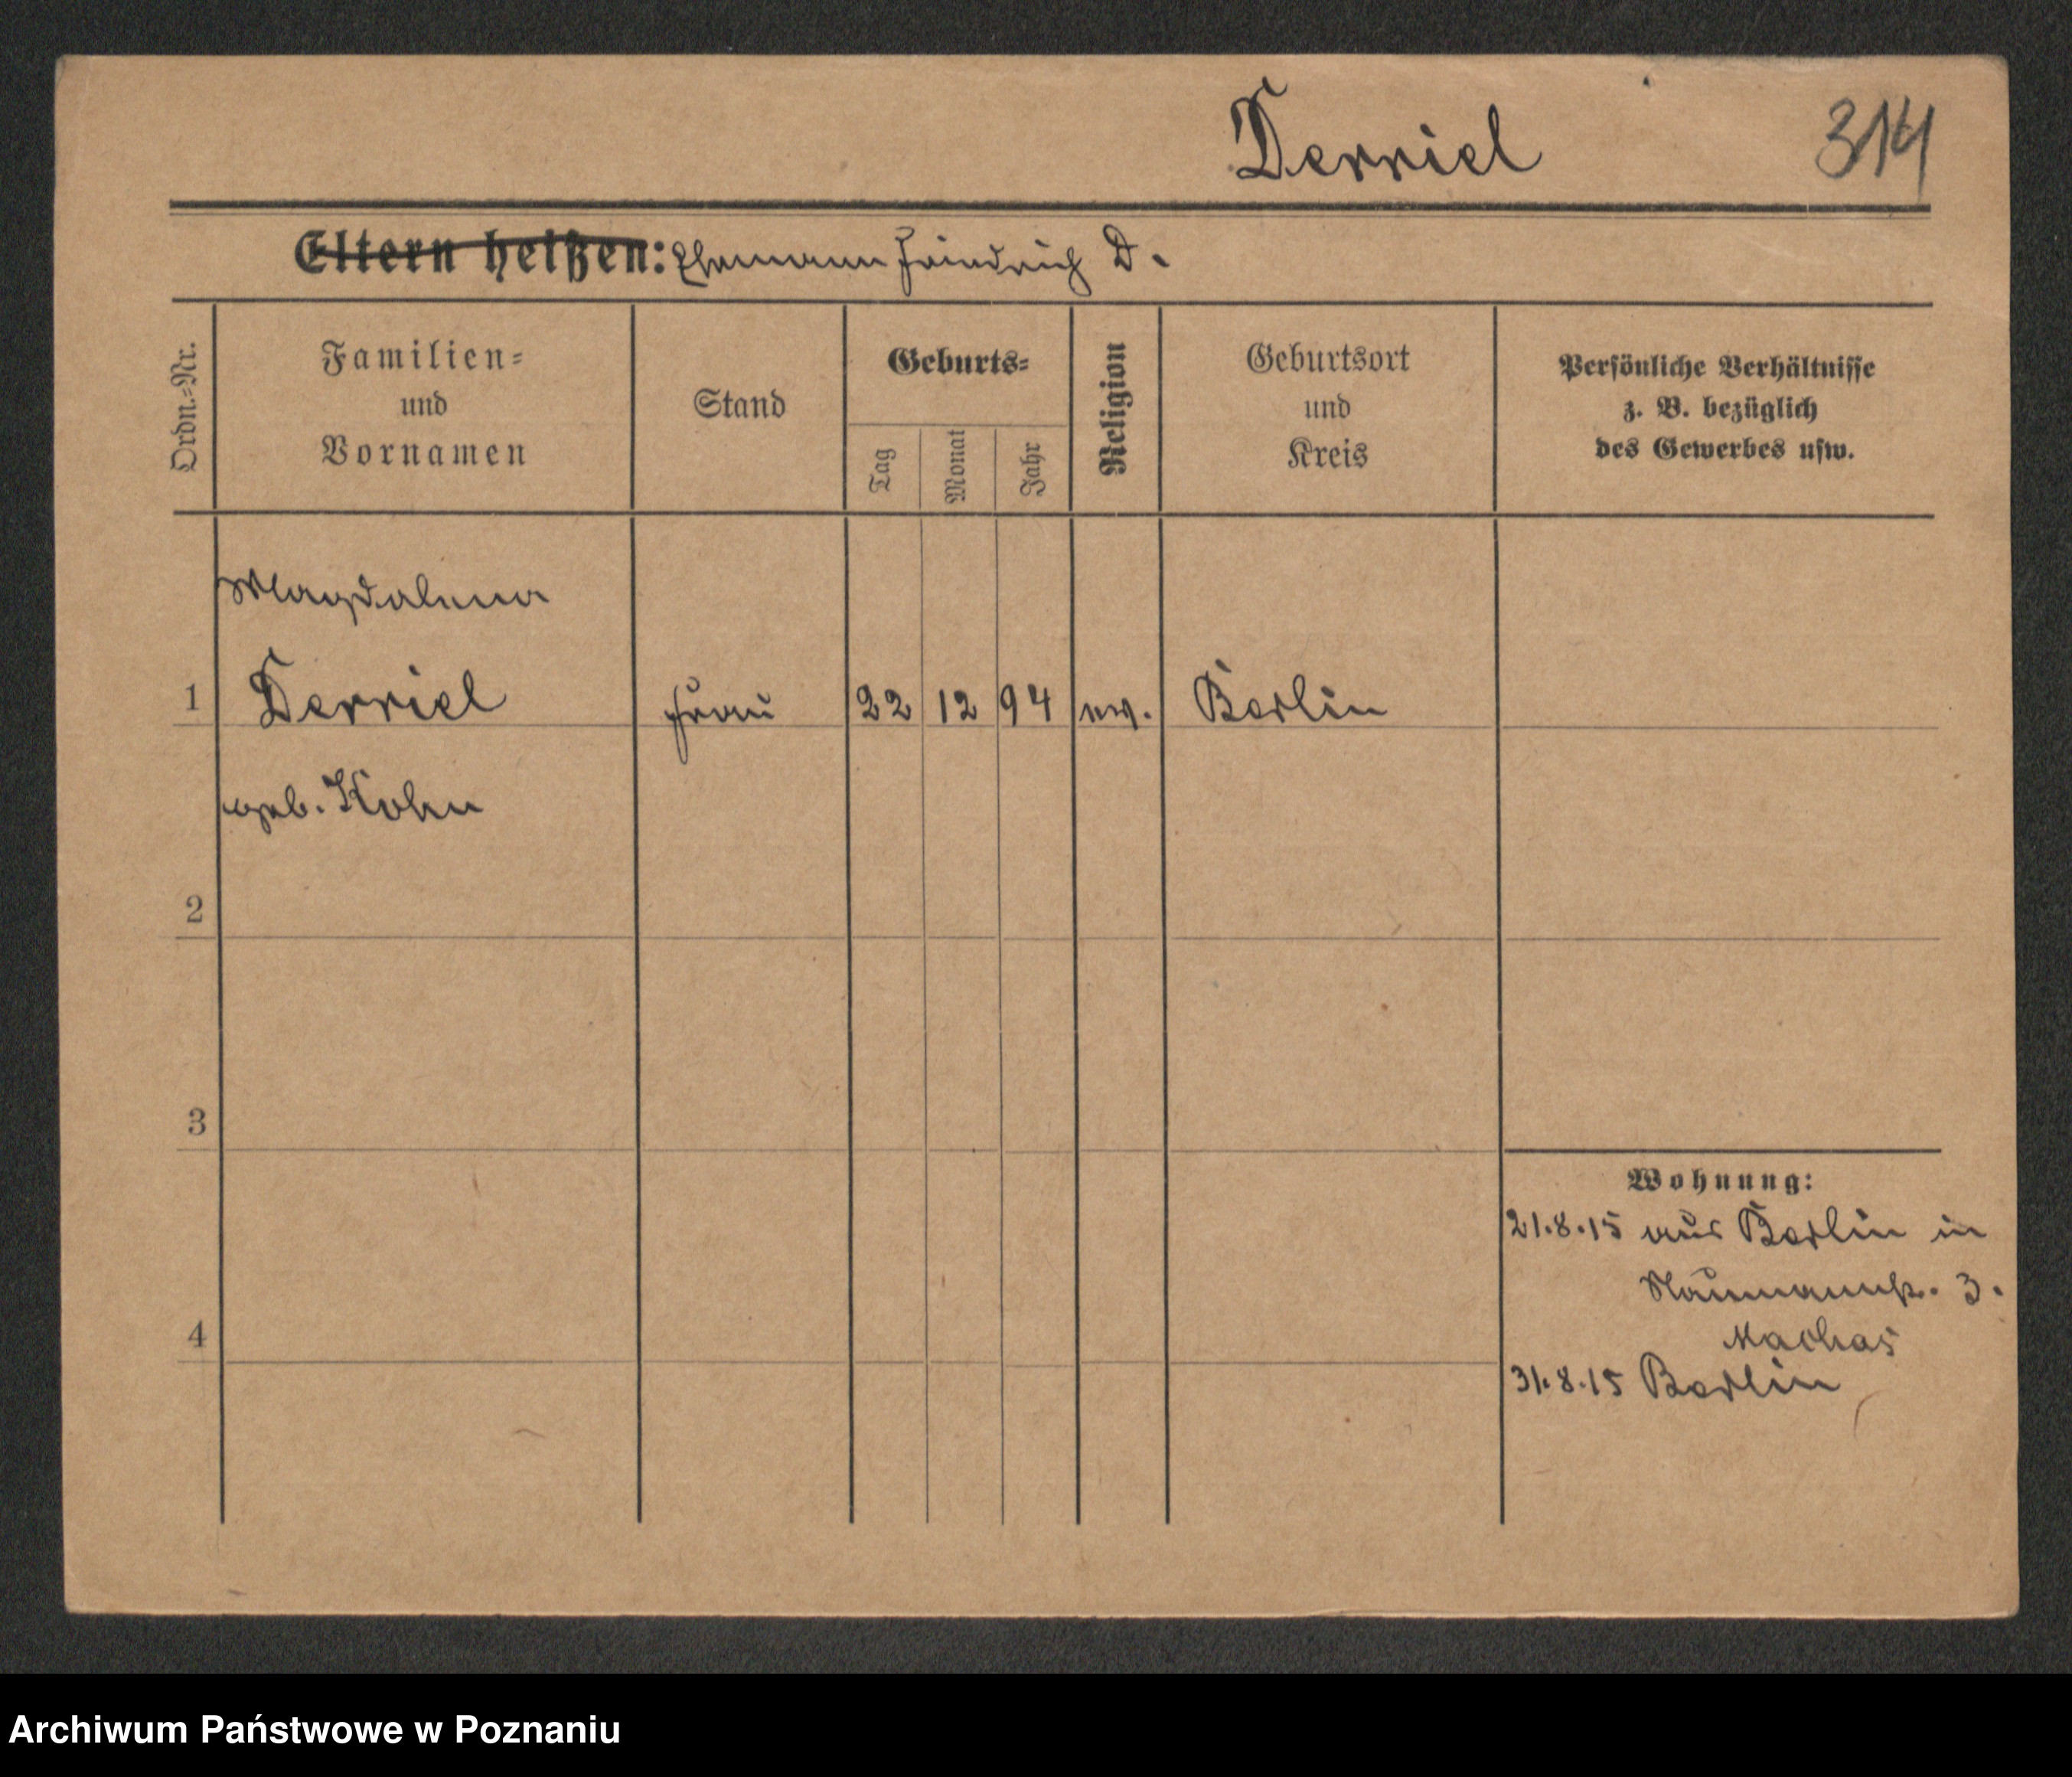 Derriel 314
Eltern heißen: Ehemann Friedrich D.
Ordn.-Nr.
Familien-
und
Vornamen
Stand
Geburts-
Tag
Monat
Jahr
Religion
Geburtsort
und
Kreis
Persönliche Verhältnisse
z. B. bezüglich
des Gewerbes usw.
Magdalena
1 Derriel Frau 22 12 94 ev. Berlin
geb. Kohn
2
3
4
Wohnung:
21.8.15 aus Berlin in
Naumannstr. 3.
31.8.15 Berlin
Archiwum Państwowe w Poznaniu